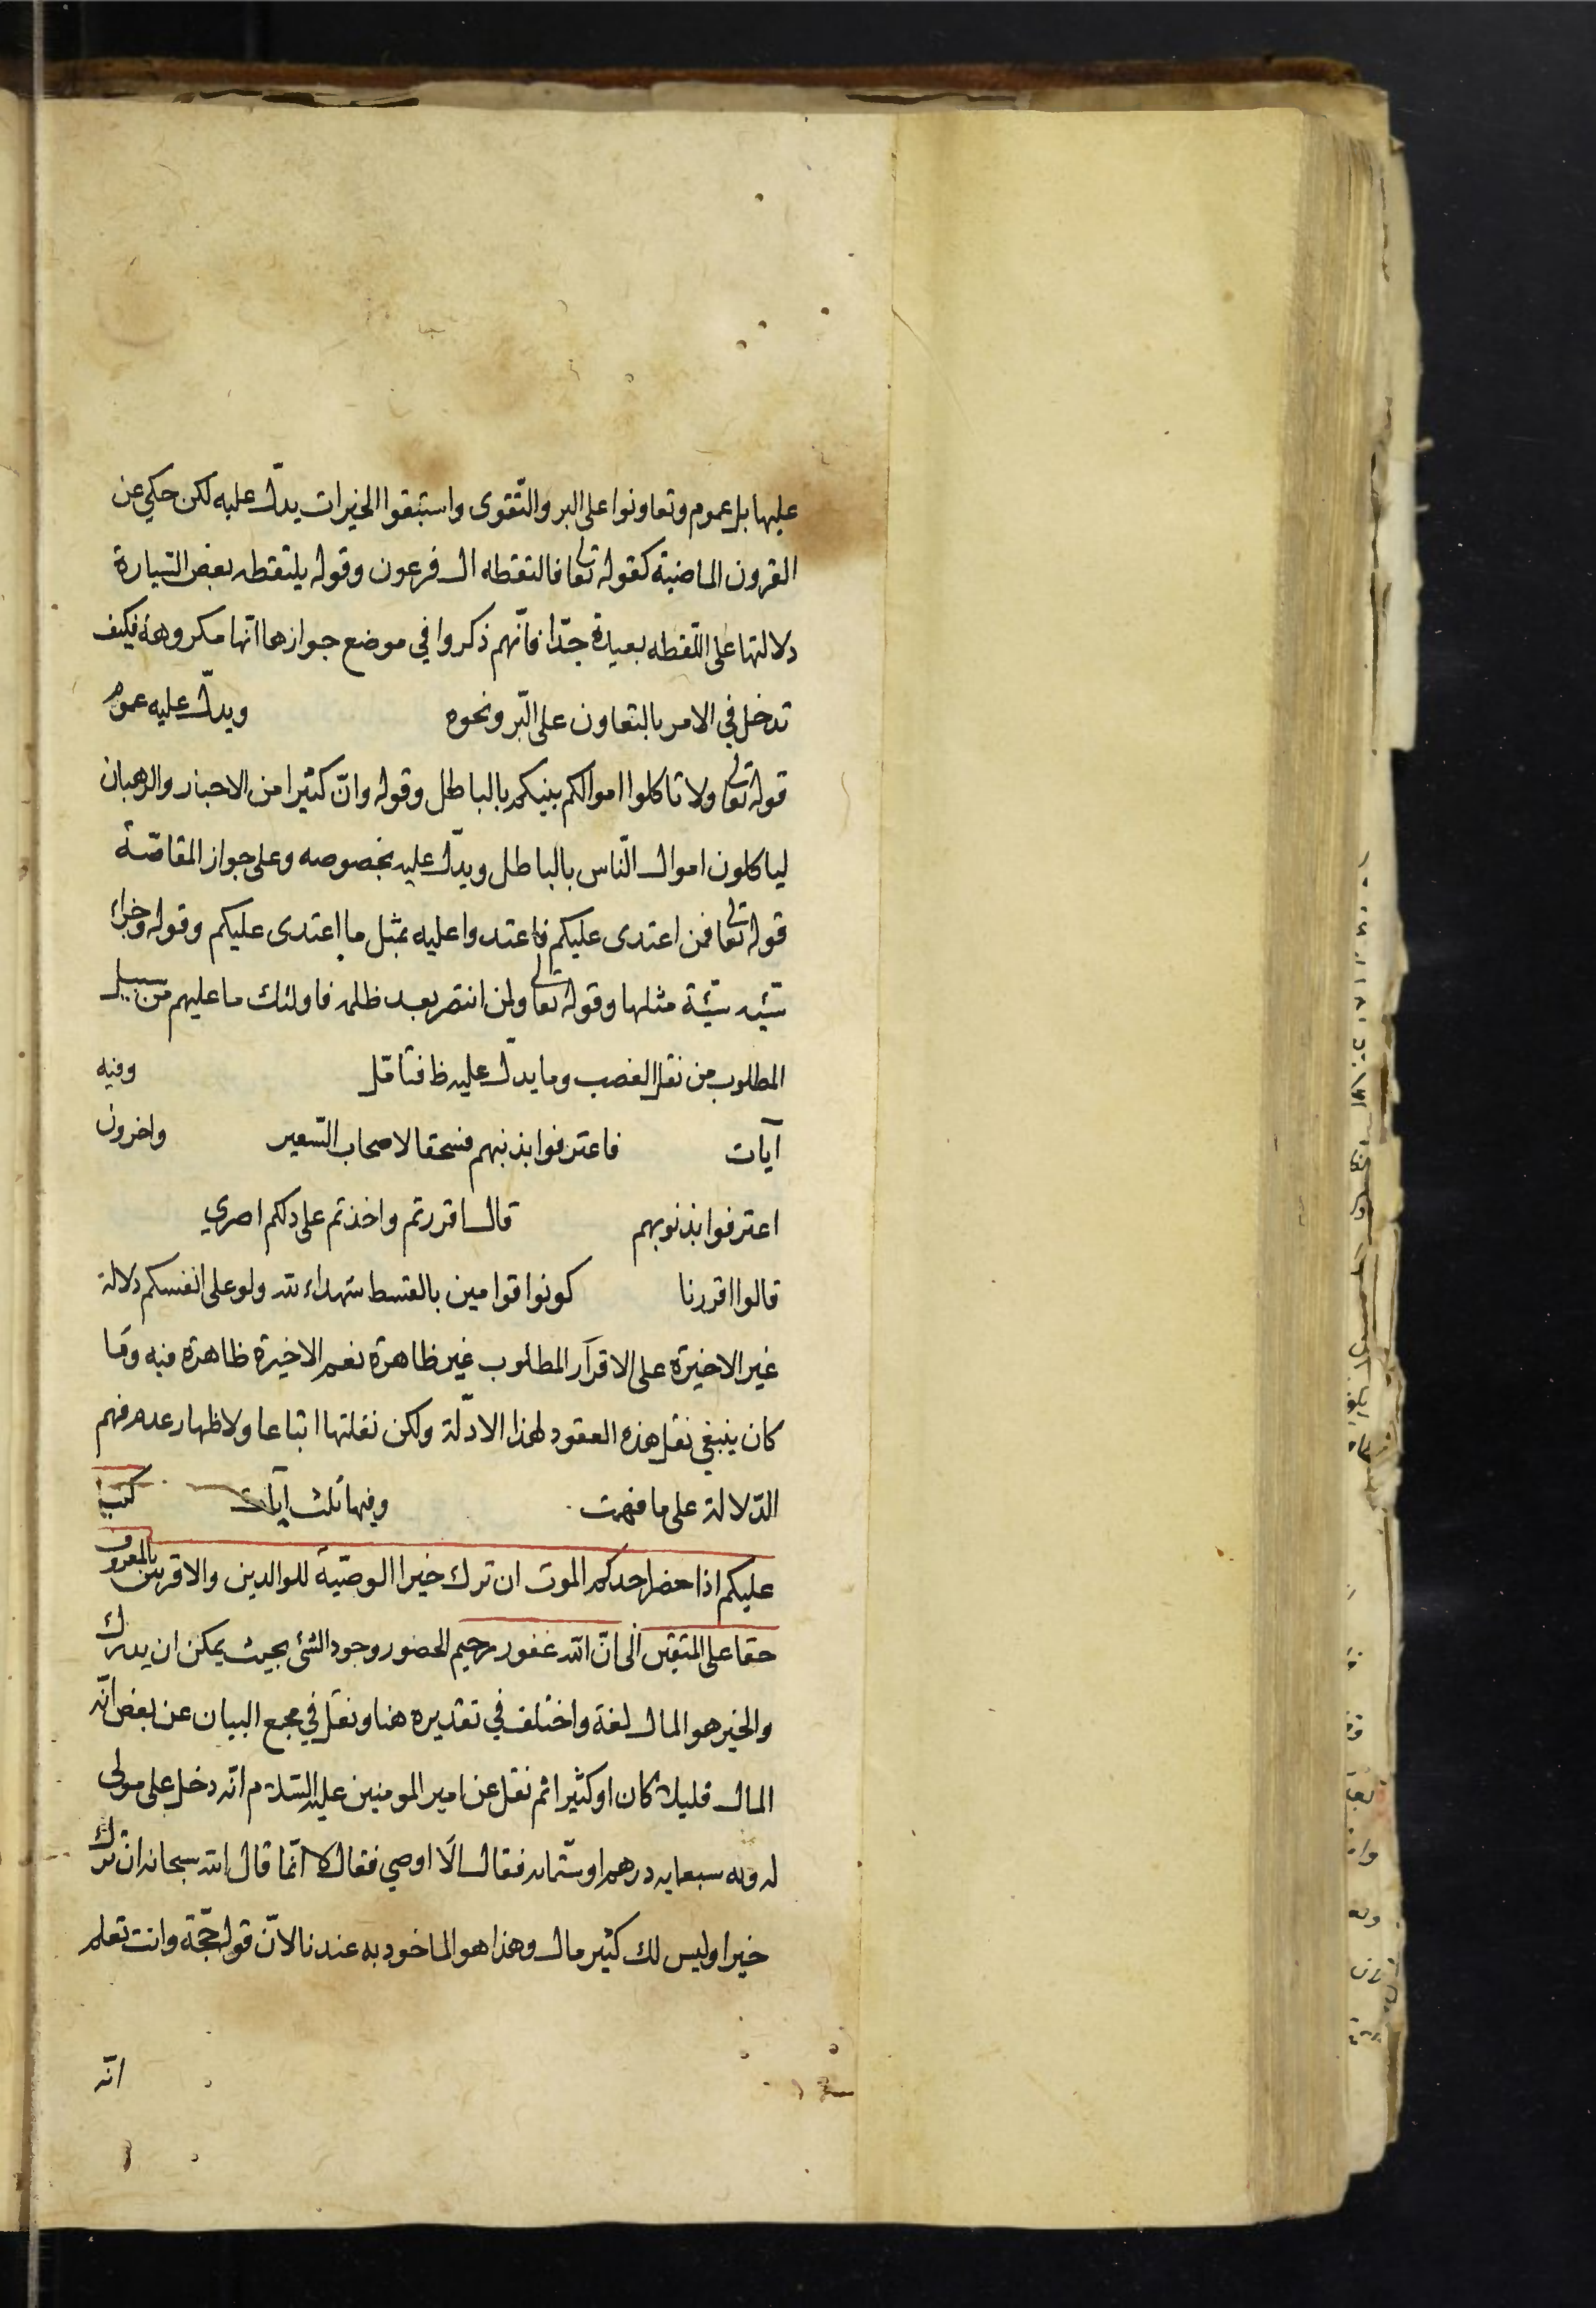 عليها بل عموم وتعاونوا على البر والتّقوى واستبقوا الخيرات يدلّ عليه لكن حكي عن
القرون الماضية كقوله تعالى فالتقطه ال فرعون وقوله يلتقطه بعض السّيارة
دلالتها على اللّقطه بعيدة جدّا فانّهم ذكروا في موضع جوازها انّها مكروهة فكيف
تدخل في الامر بالتعاون على البّر ونحوه ويدلّ عليه عموم
قوله تعالى ولا تاكلوا اموالكم بينكم بالباطل وقوله وانّ كثيرا من الاحبار والرهبان
لياكلون اموال النّاس بالباطل ويدلّ عليه بخصوصه وعلى جواز المقاصّة
قوله تعالى فمن اعتدى عليكم فاعتدوا عليه بمثل ما اعتدى عليكم وقوله وجزاء
سّيئه سّيئة مثلها وقوله تعالى ولمن انتصر بعد ظلمه فاولئك ما عليهم من سبيل
المطلوب من نقل الغصب وما يدلّ عليه ظ فتامّل وفيه
آيات فاعترفوا بذنبهم فسحقا لاصحاب السّعير واخرون
اعترفوا بذنوبهم قال اقررتم واخذتم على ذلكم اصري
قالوا اقررنا كونوا قوامين بالقسط شهداء لله ولو على انفسكم دلالة
غير الاخيرة على الاقرار المطلوب غير ظاهرة نعم الاخيرة ظاهرة فيه وما
كان ينبغي نقل هذه العقود لهذا الادلّة ولكن نقلتها اتباعا ولاظهار عدم فهم
الدّلالة على ما فهمت وفيها ثلث آيات كتب
عليكم اذا حضر احدكم الموت ان ترك خيرا الوصّية للوالدين والاقربين بالمعروف
حقا على المتقين الى انّ الله غفور رحيم الحضور وجود الشئ بحيث يمكن ان يدرك
والخير هو المال لغة واختلف في تقديره هنا ونقل في مجمع البيان عن بعض انّه
المال قليلا كان او كثيرا ثم نقل عن امير المومنين عليه السّلام انّه دخل على مولى
له وله سبعمايه درهم او ستّمائه فقال الَا اوصي فقال لا انّما قال الله سبحانه ان ترك
خيرا وليس لك كثير مال وهذا هو الماخوذ به عندنا لانّ قوله حجّة وانت تعلم
انّه